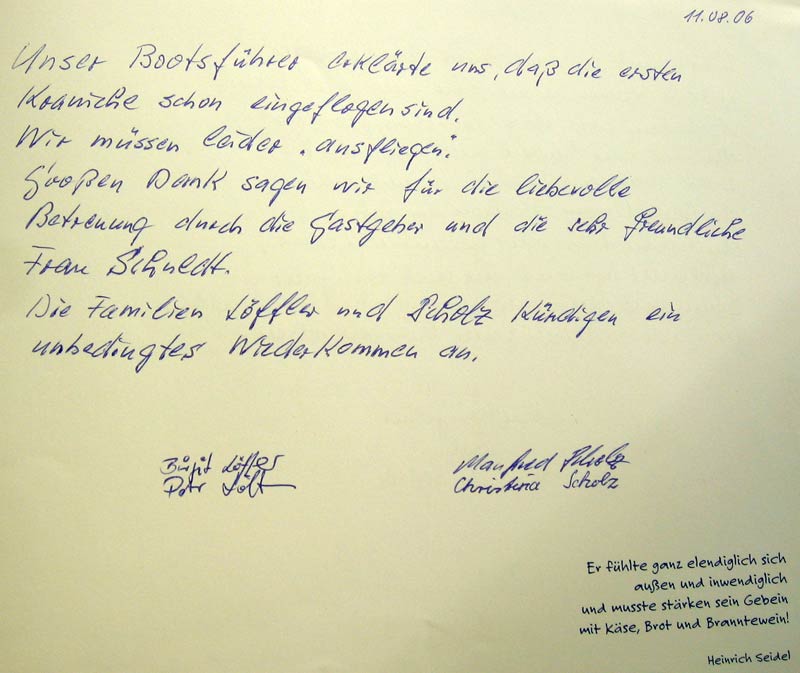 11.08.06
Unser Bootsführer erklärte uns, daß die ersten
Kraniche schon eingeflogen sind.
Wir müssen leider „ausfliegen".
Großen Dank sagen wir für die liebevolle
Betreuung durch die Gastgeber und die sehr freundliche
Frau
Die Familien Löffler und Scholz kündigen ein
unbedingtes Wiederkommen an.
Birgit Löffler
Manfred Scholz
Christina Scholz
Er fühlte ganz elendiglich sich
außen und inwendiglich
und musste stärken sein Gebein
mit Käse, Brot und Branntewein!
Heinrich Seidel